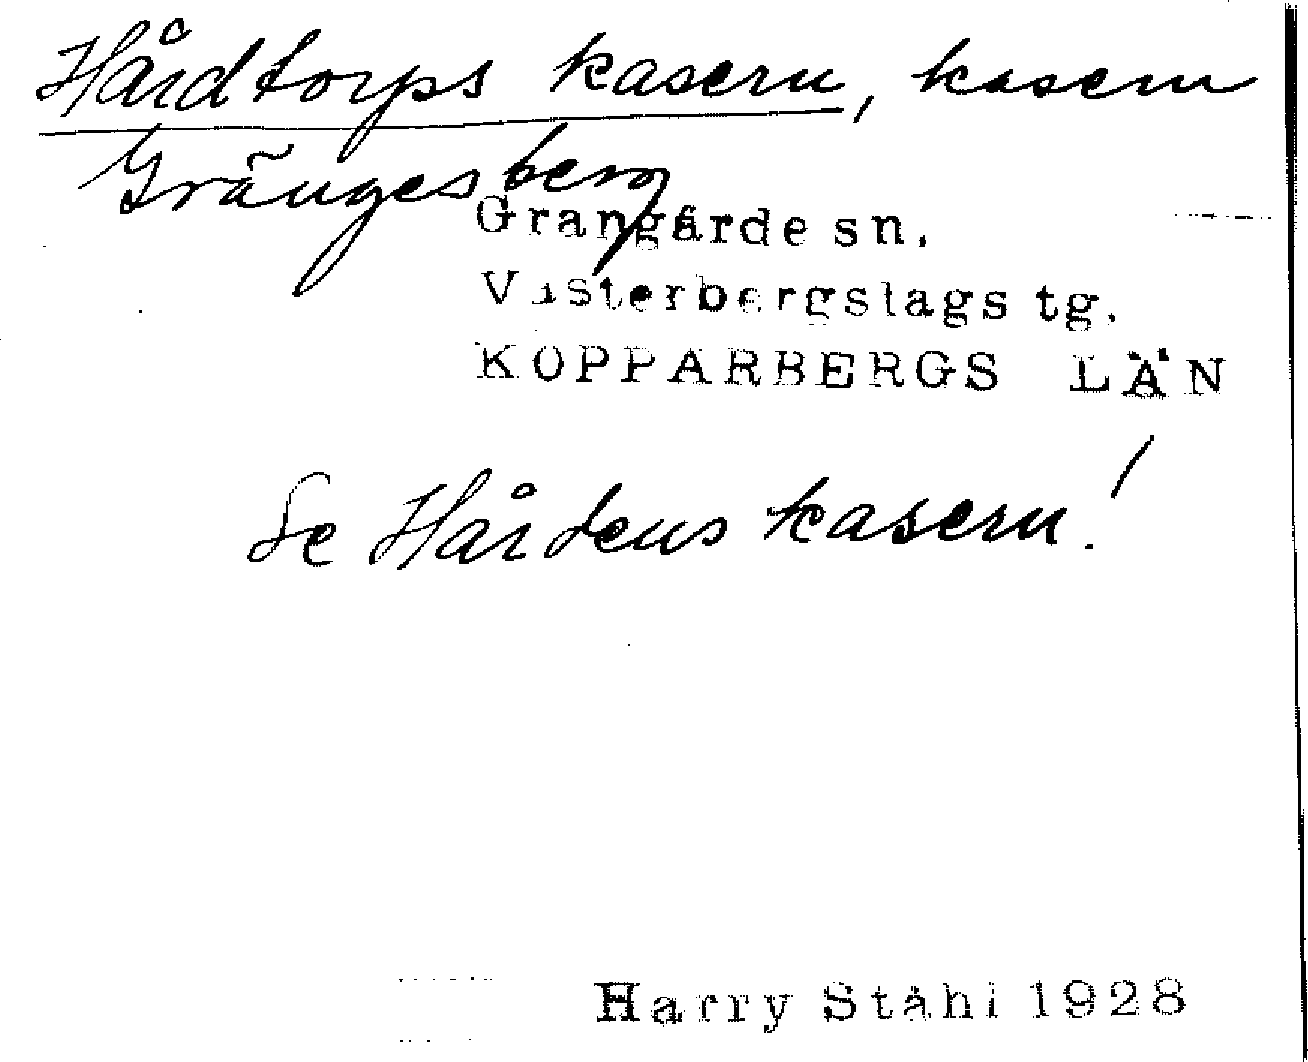 Hårdtorps kasern, kasern
Grängesberg
Grangärde sn.
Västerbergslags tg.
KOPPARBERGS LÄN
Se Hårdens kasern!
Harry Ståhl 1928